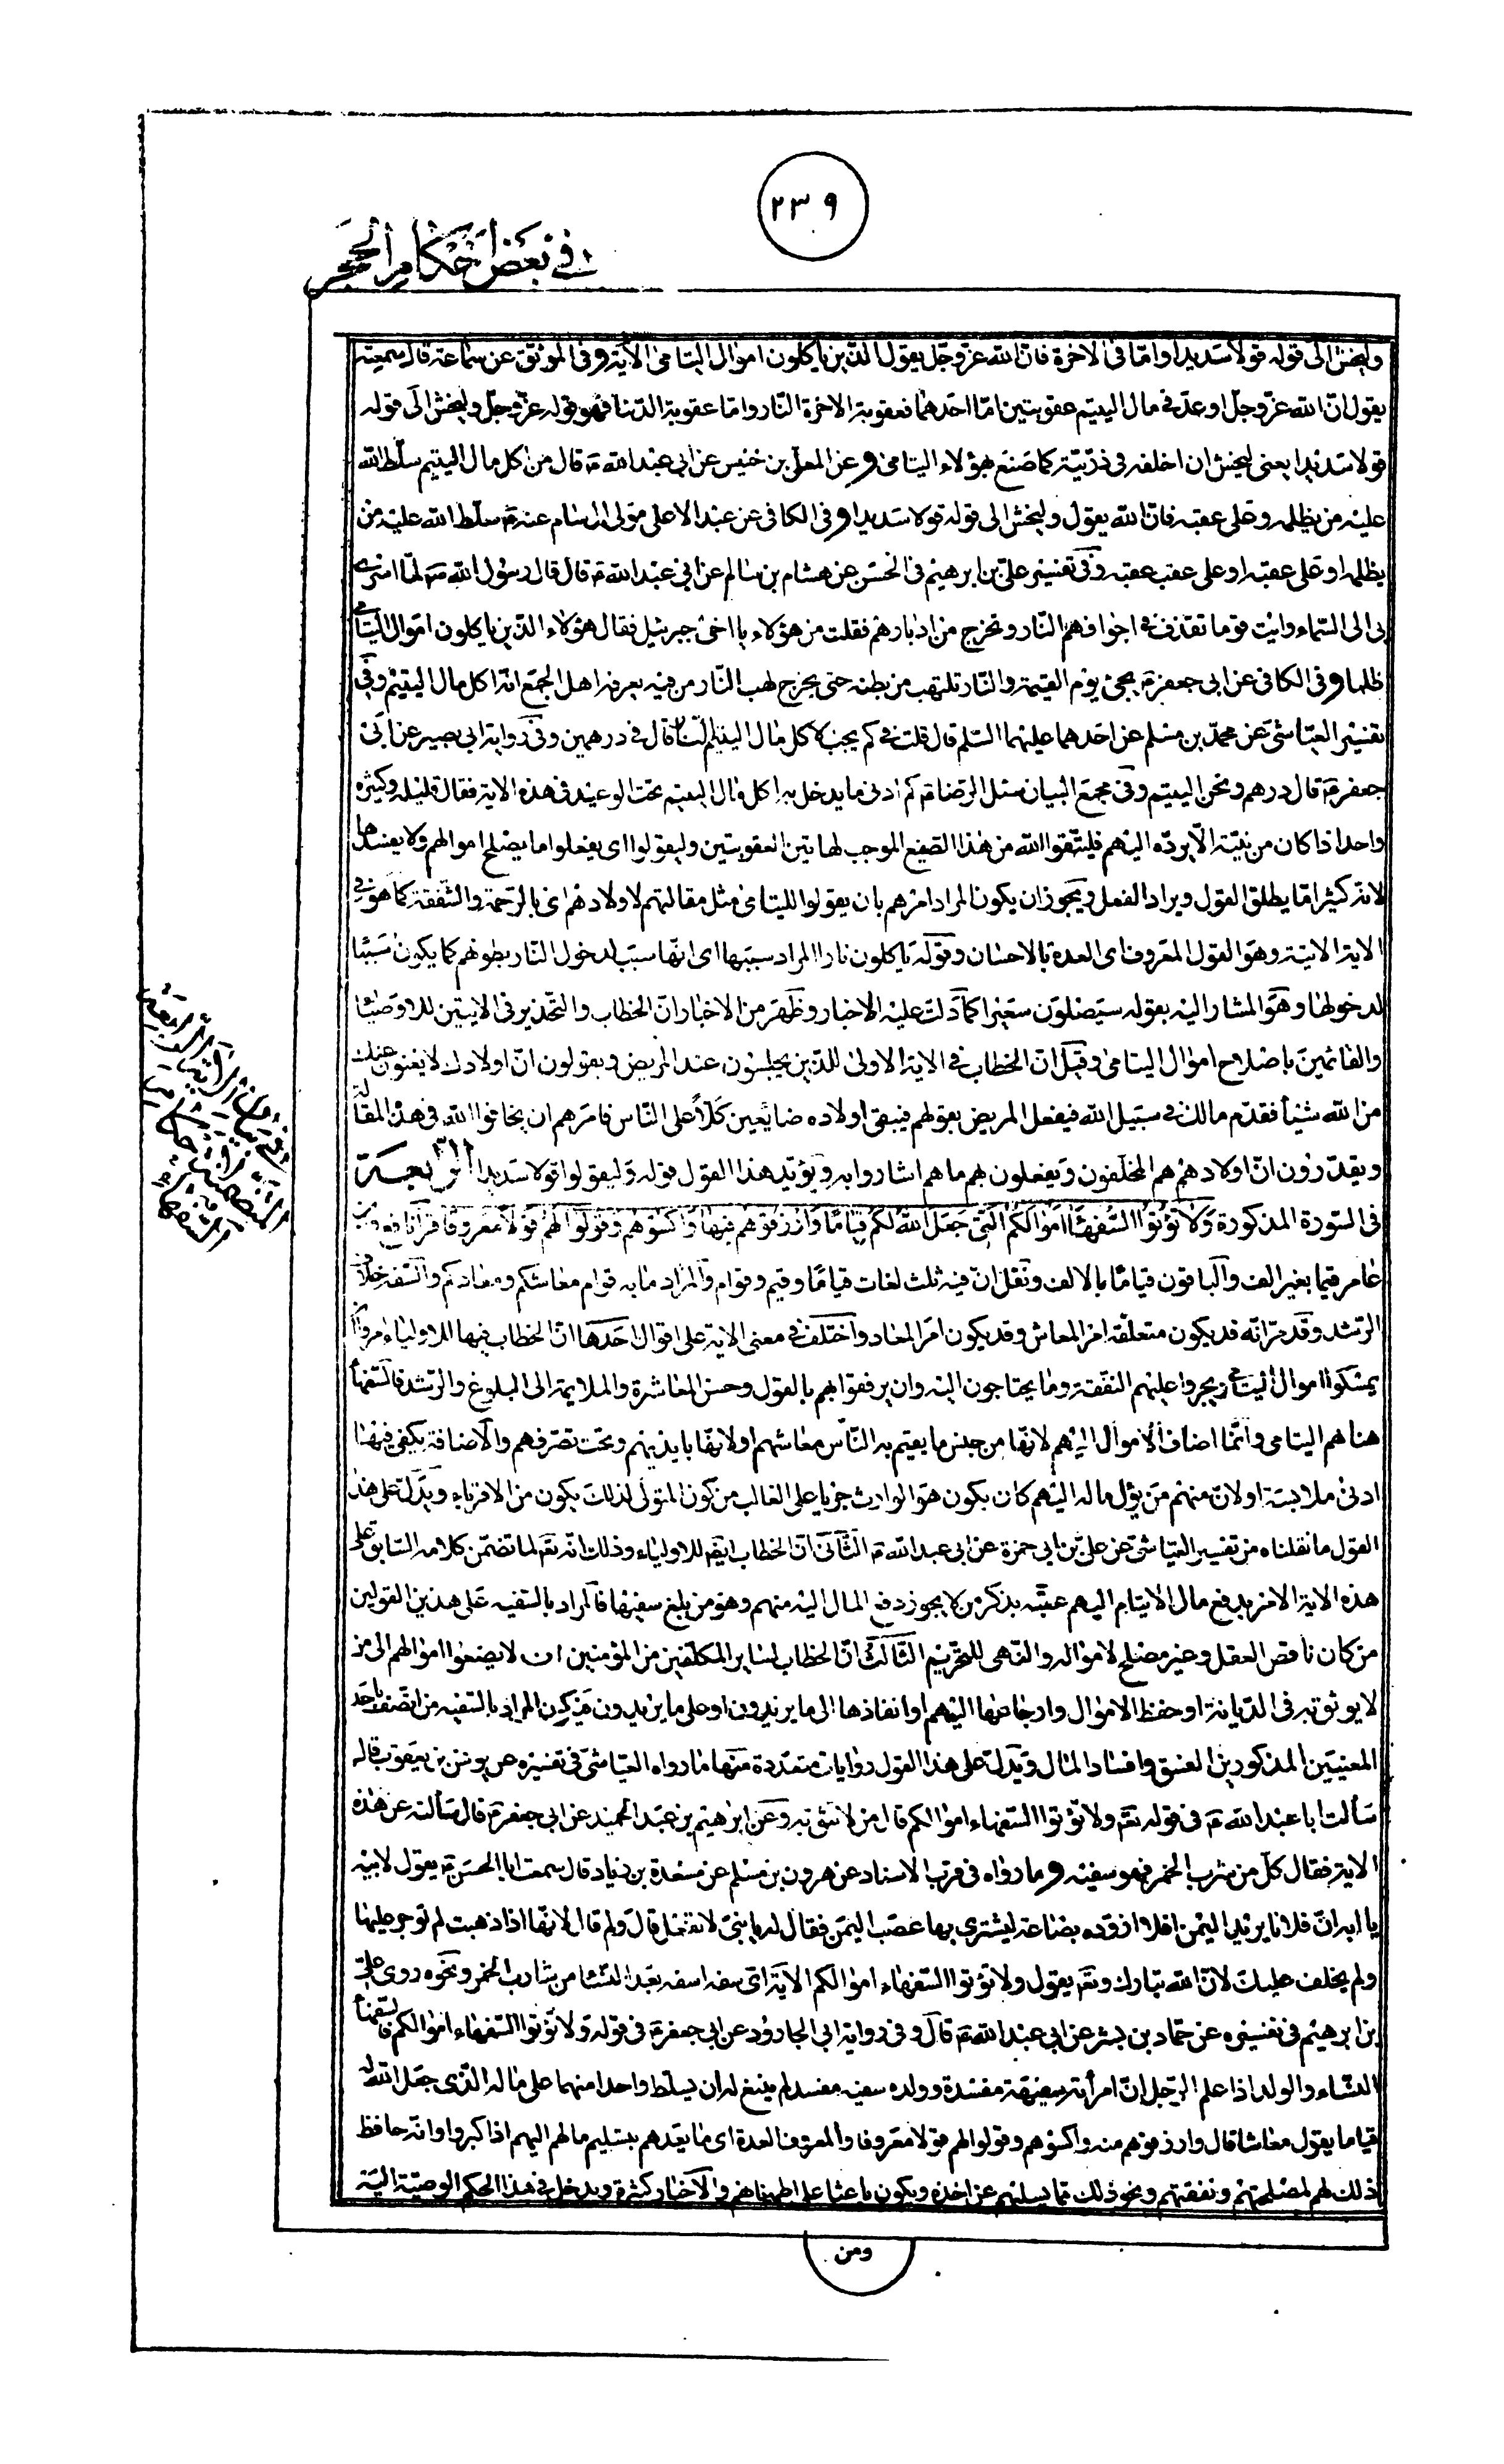 ٢٣٩
في بعض احكام الحجر
وليخش الى قوله قولا سديدا وامّا في الاخرة فانّ الله عزّ وجلّ يقول الّذين ياكلون اموال اليتامى الآية وفي الموثّق عن سماعة قال سمعته
يقول انّ الله عزّ وجلّ اوعد في مال اليتيم عقوبتين امّا احدهما فعقوبة الاخرة النّار وامّا عقوبة الدّنيا فهو قوله عزّ وجلّ وليخش الى قوله
قولا سديدا يعني ليخش ان اخلفه في ذرّيّته كما صنع بهؤلاء اليتامى وعن المعلّى بن خنيس عن ابي عبد الله ع قال من اكل مال اليتيم سلّط الله
عليه من يظلمه وعلى عقبه فانّ الله يقول وليخش الى قوله قولا سديدا وفي الكافي عن عبد الاعلى مولى ال سام عنه ع سلّط الله عليه من
يظلمه او على عقبه او على عقب عقبه وفي تفسير عليّ بن ابرهيم في الحسن عن هشام بن سالم عن ابي عبد الله ع قال قال رسول الله ص لمّا اسري
بي الى السّماء رايت قوما تقذف في اجوافهم النّار وتخرج من ادبارهم فقلت من هؤلاء يا اخي جبرئيل فقال هؤلاء الّذين ياكلون اموال اليتامى
ظلما وفي الكافي عن ابي جعفر ع يجئ يوم القيمة والنّار تلتهب من بطنه حتى يخرج لهب النّار من فيه يعرفه اهل الجمع انّه اكل مال اليتيم وفي
تفسير العيّاشيّ عن محمّد بن مسلم عن احدهما عليهما السّلم قال قلت في كم يجب لاكل مال اليتيم النّار قال في درهمين وفي رواية ابي بصير عن ابي
جعفر ع قال درهم ونحن اليتيم وفي مجمع البيان سئل الرّضا ع كم ادنى ما يدخل به اكل مال اليتيم تحت الوعيد في هذه الاية فقال قليله وكثيره
واحد اذا كان من نيّته الّا يردّه اليهم فليتّقوا الله من هذا الصّنيع الموجب لهاتين العقوبتين وليقولوا اى يفعلوا ما يصلح اموالهم ولا يفسدها
لانّه كثيرا مّا يطلق القول ويراد الفعل ويجوز ان يكون المراد امرهم بان يقولوا لليتامى مثل مقالتهم لاولادهم اى بالرّحمة والشّفقة كما هو في
الاية الاتية وهو القول المعروف اى العدة بالاحسان وقوله ياكلون نارا المراد سببها اى انّها سبب لدخول النّار بطونهم كما يكون سببا
لدخولها وهو المشار اليه بقوله سيصلون سعيرا كما دلّت عليه الاخبار وظهر من الاخبار انّ الخطاب والتّحذير في الايتين للاوصياء
والقائمين باصلاح اموال اليتامى وقيل انّ الخطاب في الاية الاولى للّذين يجلسون عند المريض ويقولون انّ اولادك لا يغنون عنك
من الله شيئا فقدّم مالك في سبيل الله فيفعل المريض بقولهم فيبقى اولاده ضائعين كلّا على النّاس فامرهم ان يخافوا الله في هذه المقالة
ويقدّرون انّ اولادهم هم المخلّفون ويفعلون بهم ما هم اشاروا به ويؤيّد هذا القول قوله وليقولوا قولا سديدا الرّابعة
في السّورة المذكورة ولا تؤتوا السّفهاء اموالكم الّتي جعل الله لكم قياما وارزقوهم فيها واكسوهم وقولوا لهم قولا معروفا قرأ نافع وابن
عامر قيما بغير الف والباقون قياما بالالف ونقل انّ فيه ثلث لغات قياما وقيم وقوام والمراد ما به قوام معاشكم ومعادكم والسّفه خلاف
الرّشد وقد مرّ انّه قد يكون متعلّقه امر المعاش وقد يكون امر المعاد واختلف في معنى الاية على اقوال احدها انّ الخطاب فيها للاولياء امروا ان
يمسكوا اموال اليتامى ويجروا عليهم النّفقة وما يحتاجون اليه وان يرفقوا بهم بالقول وحسن المعاشرة والملايمة الى البلوغ والرّشد فالسّفهاء
هنا هم اليتامى وانّما اضاف الاموال اليهم لانّها من جنس ما يقيم به النّاس معاشهم او لانّها بايديهم وتحت تصرّفهم والاضافة يكفي فيها
ادنى ملابسة او لانّ منهم من يؤل ماله اليهم كان يكون هو الوارث جريا على الغالب من كون المتولّي لذلك يكون من الاقرباء ويدلّ على هذا
القول ما نقلناه من تفسير العيّاشيّ عن عليّ بن ابي حمزة عن ابي عبد الله ع الثّاني انّ الخطاب ايضا للاولياء وذلك انّه تع لما تضمّن كلامه السّابق على
هذه الاية الامر بدفع مال الايتام اليهم عقّبه بذكر من لا يجوز دفع المال اليه منهم وهو من بلغ سفيها فالمراد بالسّفيه على هذين القولين
من كان ناقص العقل وغير مصلح لامواله والنّهي للتّحريم الثّالث انّ الخطاب لساير المكلّفين من المؤمنين ان لا يضعوا اموالهم الى من
لا يوثق به في الدّيانة او حفظ الاموال وارجاعها اليهم او انفاذها الى ما يريدون او على ما يريدون فيكون المراد بالسّفيه من اتّصف باحد
المعنيين المذكورين الفسق وافساد المال ويدلّ على هذا القول روايات متعدّدة منها ما رواه العيّاشيّ في تفسيره عن يونس بن يعقوب قال
سألت ابا عبد الله ع في قوله تع ولا تؤتوا السّفهاء اموالكم قال من لا تثق به وعن ابرهيم بن عبد الحميد عن ابي جعفر ع قال سألته عن هذه
الاية فقال كلّ من شرب الخمر فهو سفيه وما رواه في قرب الاسناد عن هرون بن مسلم عن مسعدة بن زياد قال سمعت ابا الحسن ع يقول لابيه
يا ابه انّ فلانا يريد اليمن افلا ازوّده بضاعة ليشتري بها عصب اليمن فقال له يا بنيّ لا تفعل قال ولم قال لانّها اذا ذهبت لم توجر عليها
ولم يخلف عليك لانّ الله تبارك وتع يقول ولا تؤتوا السّفهاء اموالكم الاية اى سفه اسفه بعد النّساء من شارب الخمر ونحوه روى عليّ
بن ابرهيم في تفسيره عن حمّاد بن بشر عن ابي عبد الله ع قال وفي رواية ابي الجارود عن ابي جعفر ع في قوله ولا تؤتوا السّفهاء اموالكم فالسّفهاء
النّساء والولد اذا علم الرّجل انّ امرأته سفيهة مفسدة وولده سفيه مفسد لم ينبغ له ان يسلّط واحدا منهما على ماله الّذي جعل الله له
قياما يقول معاشا قال وارزقوهم منه واكسوهم وقولوا لهم قولا معروفا والمعروف العدة اى ما يعدهم بتسليم مالهم اليهم اذا كبروا وانّه حافظ
ذلك لهم لمصلحتهم ونفقتهم ونحو ذلك ممّا يسلّيهم عن اخذه ويكون باعثا على اطمينانهم والاخبار كثيرة ويدخل في هذا الحكم الوصيّة اليه
ومن
في بيان الاية الرّابعة
المتضمّنة لاحكام
السّفهاء